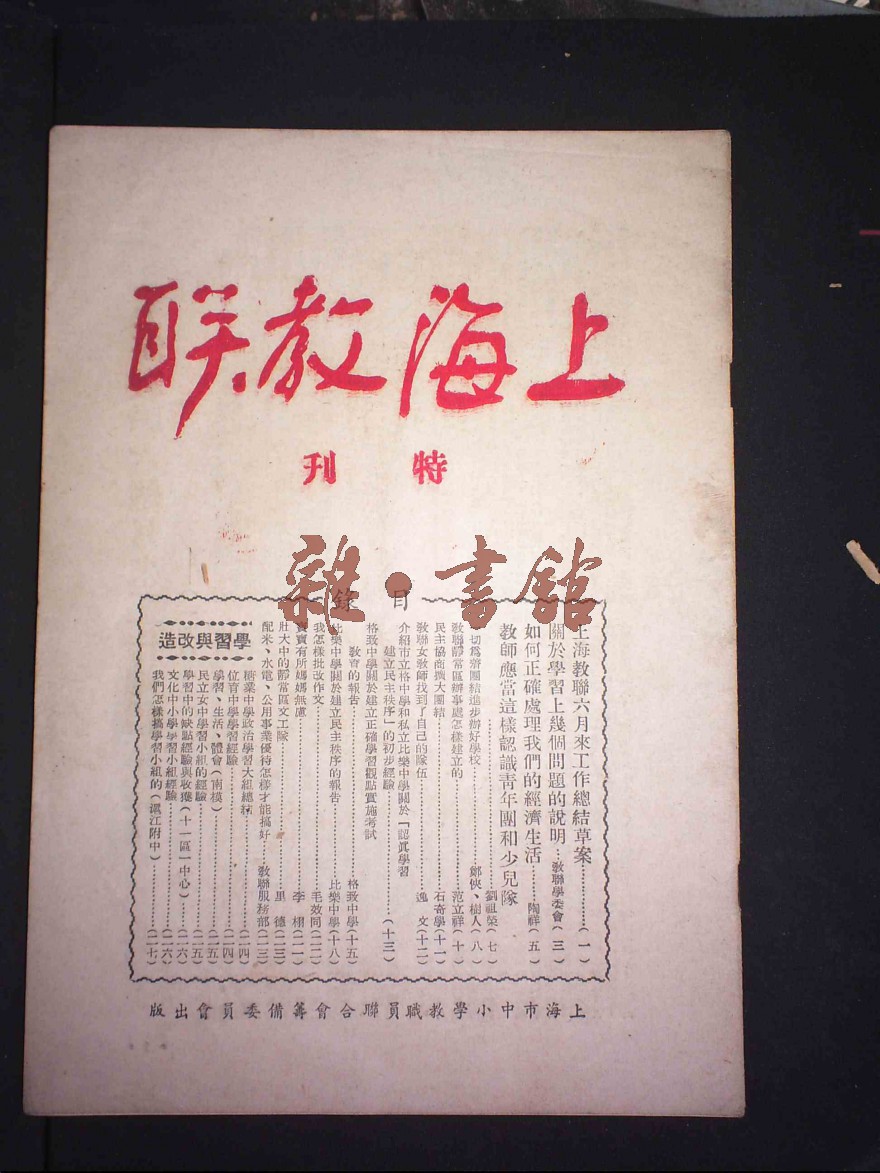 上海教联
特刊
雜·書館
目錄
上海教聯六月來工作總結草案…………(一)
關於學習上幾個問題的說明…教聯學委會(三)
如何正確處理我們的經濟生活………陶祥(五)
教師應當這樣認識青年團和少兒隊
…………劉祖榮(七)
一切爲着團結進步辦好學校………鄭俠、樹人(八)
教聯靜常區辦事處怎樣建立的………范立祥(十)
民主協商擴大團結………石奇學(十一)
教聯女教師找到了自己的隊伍………逸文(十二)
介紹市立格中學和私立比樂中學關於「認眞學習
建立民主秩序」的初步經驗………(十三)
格致中學關於建立正確學習觀點實施考試
教育的報告………格致中學(十五)
比樂中學關於建立民主秩序的報告………比樂中學(十八)
我怎樣批改作文………毛效同(二二)
寶寶有所媽媽無慮………李栩(二一)
壯大中的靜常區文工隊………里德(二三)
配米、水電、公用事業優待怎樣才能搞好 教聯服務部(二三)
學習與改造
中學政治學習大組總結………(二四)
位育中學學習經驗………(二四)
學習、生活、體會(南模)………(二五)
民立女中學習小組的經驗………(二五)
學習中的缺點經驗與收獲(十一區一中心)………(二六)
文化中小學學習小組經驗………(二六)
我們怎樣搞學習小組的(滬江附中)………(二七)
上海市中小學教職員聯合會籌備委員會出版